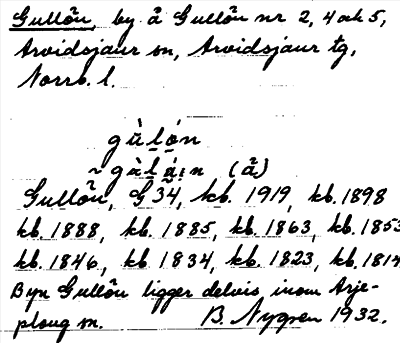 Gullön, by å Gullön nr 2, 4 och 5,
Arvidsjaur sn, Arvidsjaur tg,
Norrb. l.
gùlón
~ gùlán (å)
Gullön, G34, kb. 1919, kb. 1898
kb. 1888, kb. 1885, kb. 1863, kb. 1853
kb. 1846, kb 1834, kb. 1823, kb. 1814
Byn Gullön ligger delvis inom Arje-
ploug sn. B. Nygren 1932.